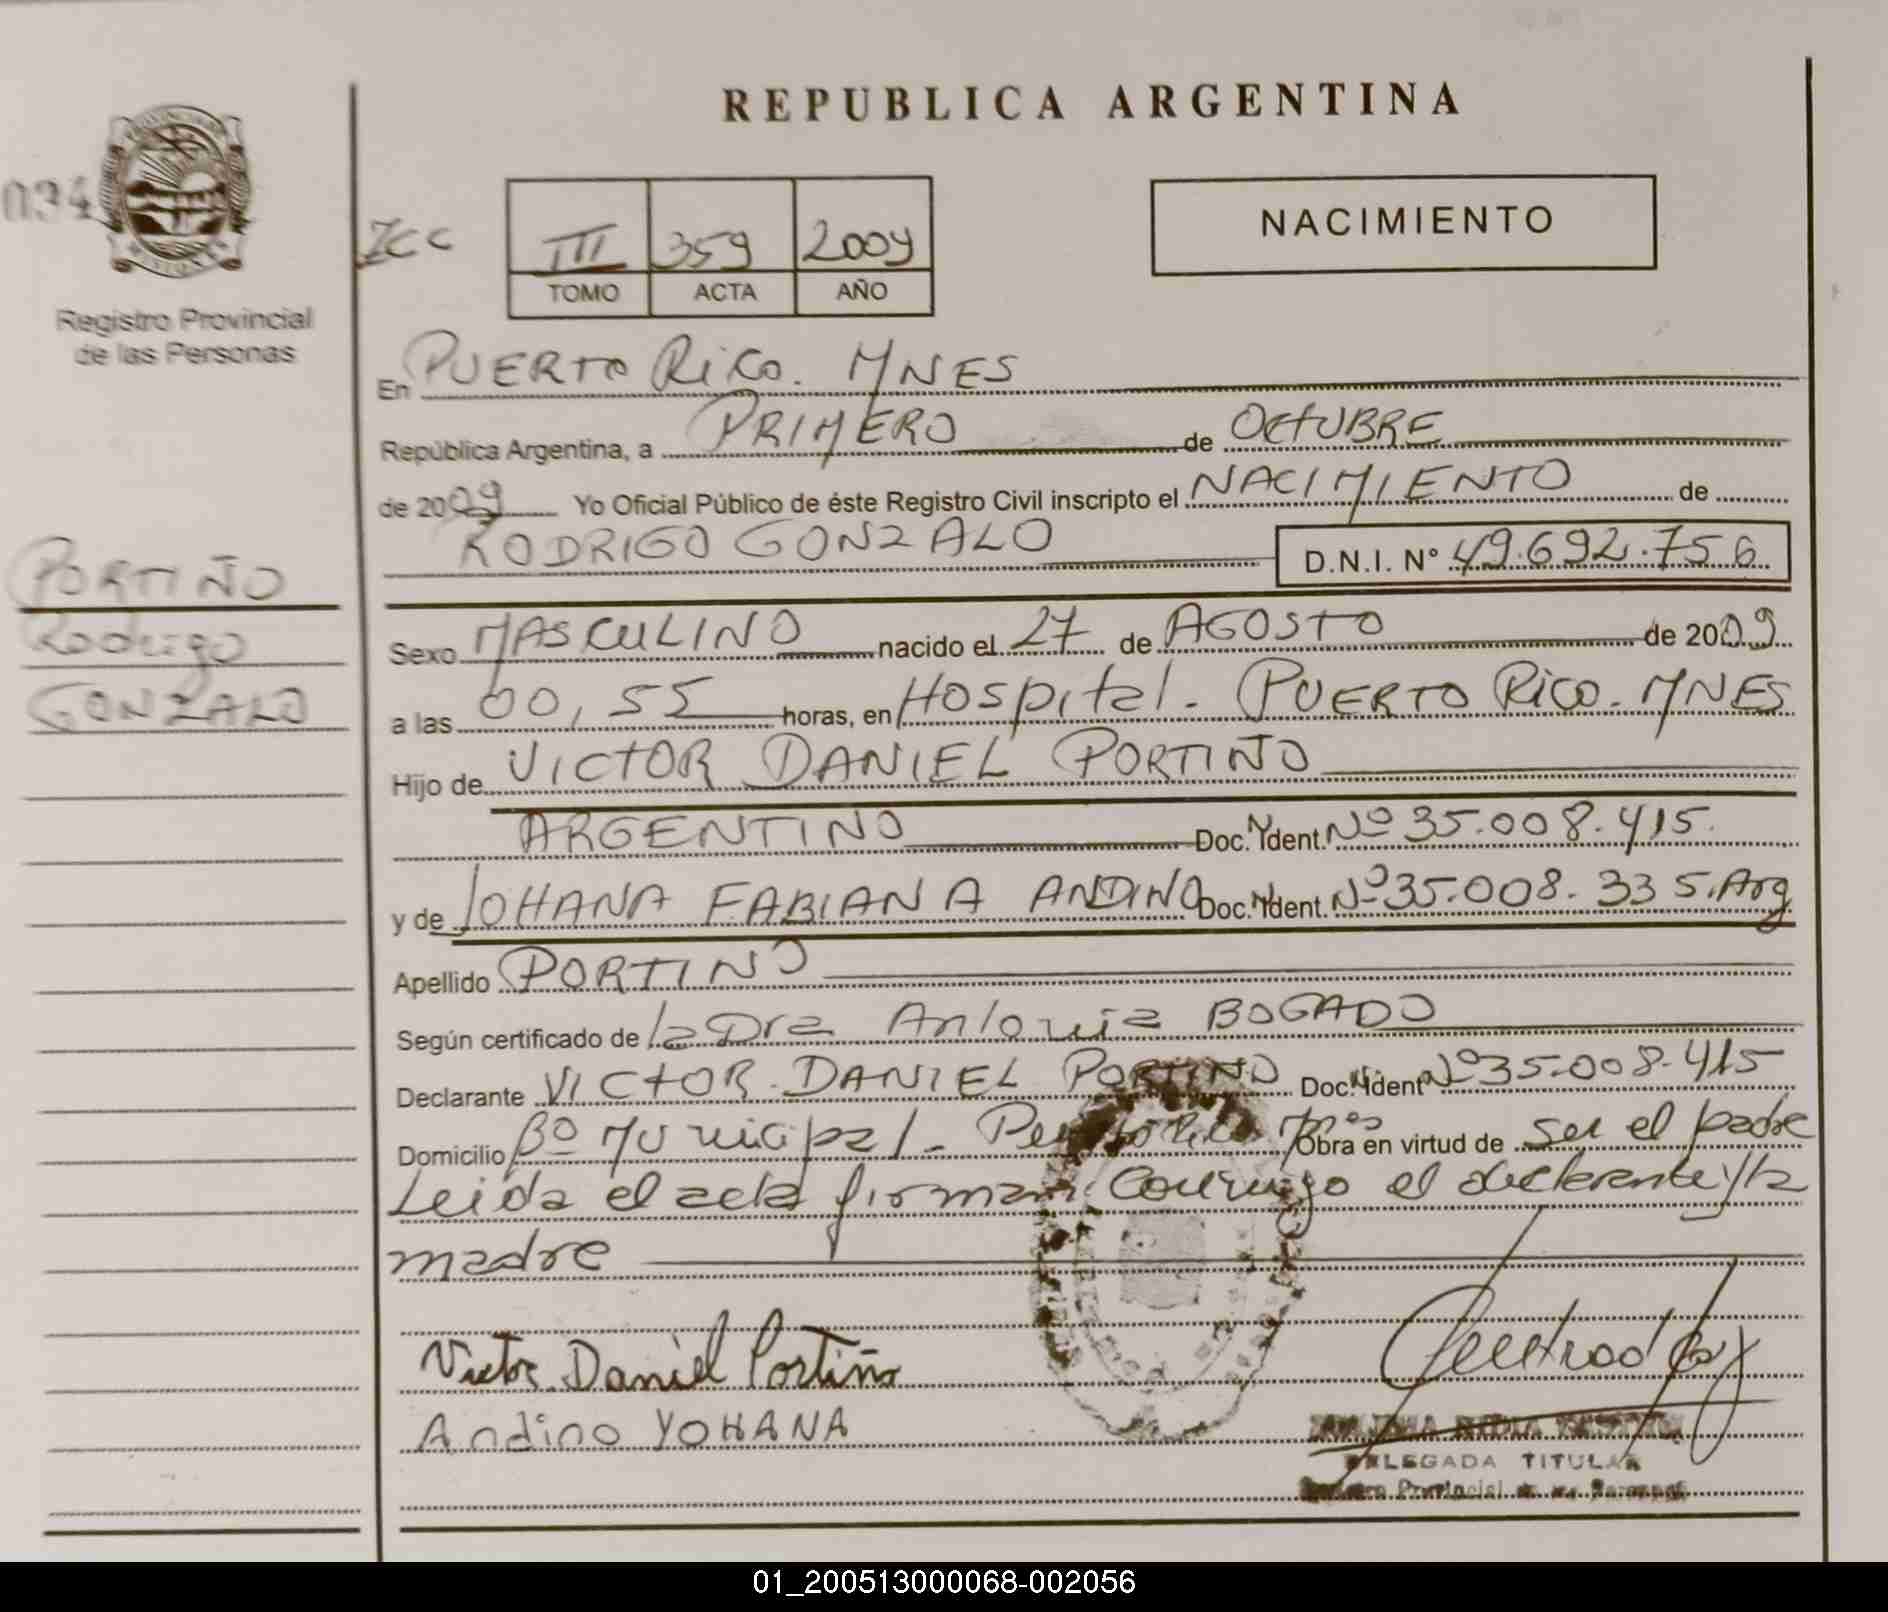 REPUBLICA ARGENTINA
034
Registro Provincial
de las Personas
ICC
III 359 2009
TOMO ACTA AÑO
NACIMIENTO
En PUERTO RICO. MNES
República Argentina, a PRIMERO de OCTUBRE
de 2009 Yo Oficial Público de éste Registro Civil inscripto el NACIMIENTO de
RODRIGO GONZALO D.N.I. Nº 49.692.756
PORTIÑO
Rodrigo
GONZALO
Sexo MASCULINO nacido el 27 de AGOSTO de 2009
a las 00,55 horas, en Hospital - PUERTO RICO. MNES
Hijo de VICTOR DANIEL PORTIÑO
ARGENTINO Doc. Ident. Nº 35.008.415.
y de JOHANA FABIANA ANDINO Doc. Ident. Nº 35.008.335. Arg
Apellido PORTIÑO
Según certificado de la Dra Antonia BOGADO
Declarante VICTOR DANIEL PORTIÑO Doc. Ident Nº 35.008.415
Domicilio Bº Municipal - Puerto Rico Mnes Obra en virtud de ser el padre
Leida el acta firman conmigo el declarante y la
madre
Victor Daniel Portiño
Andino YOHANA
DELEGADA TITULAR
Registro Provincial de las Personas
01_200513000068-002056